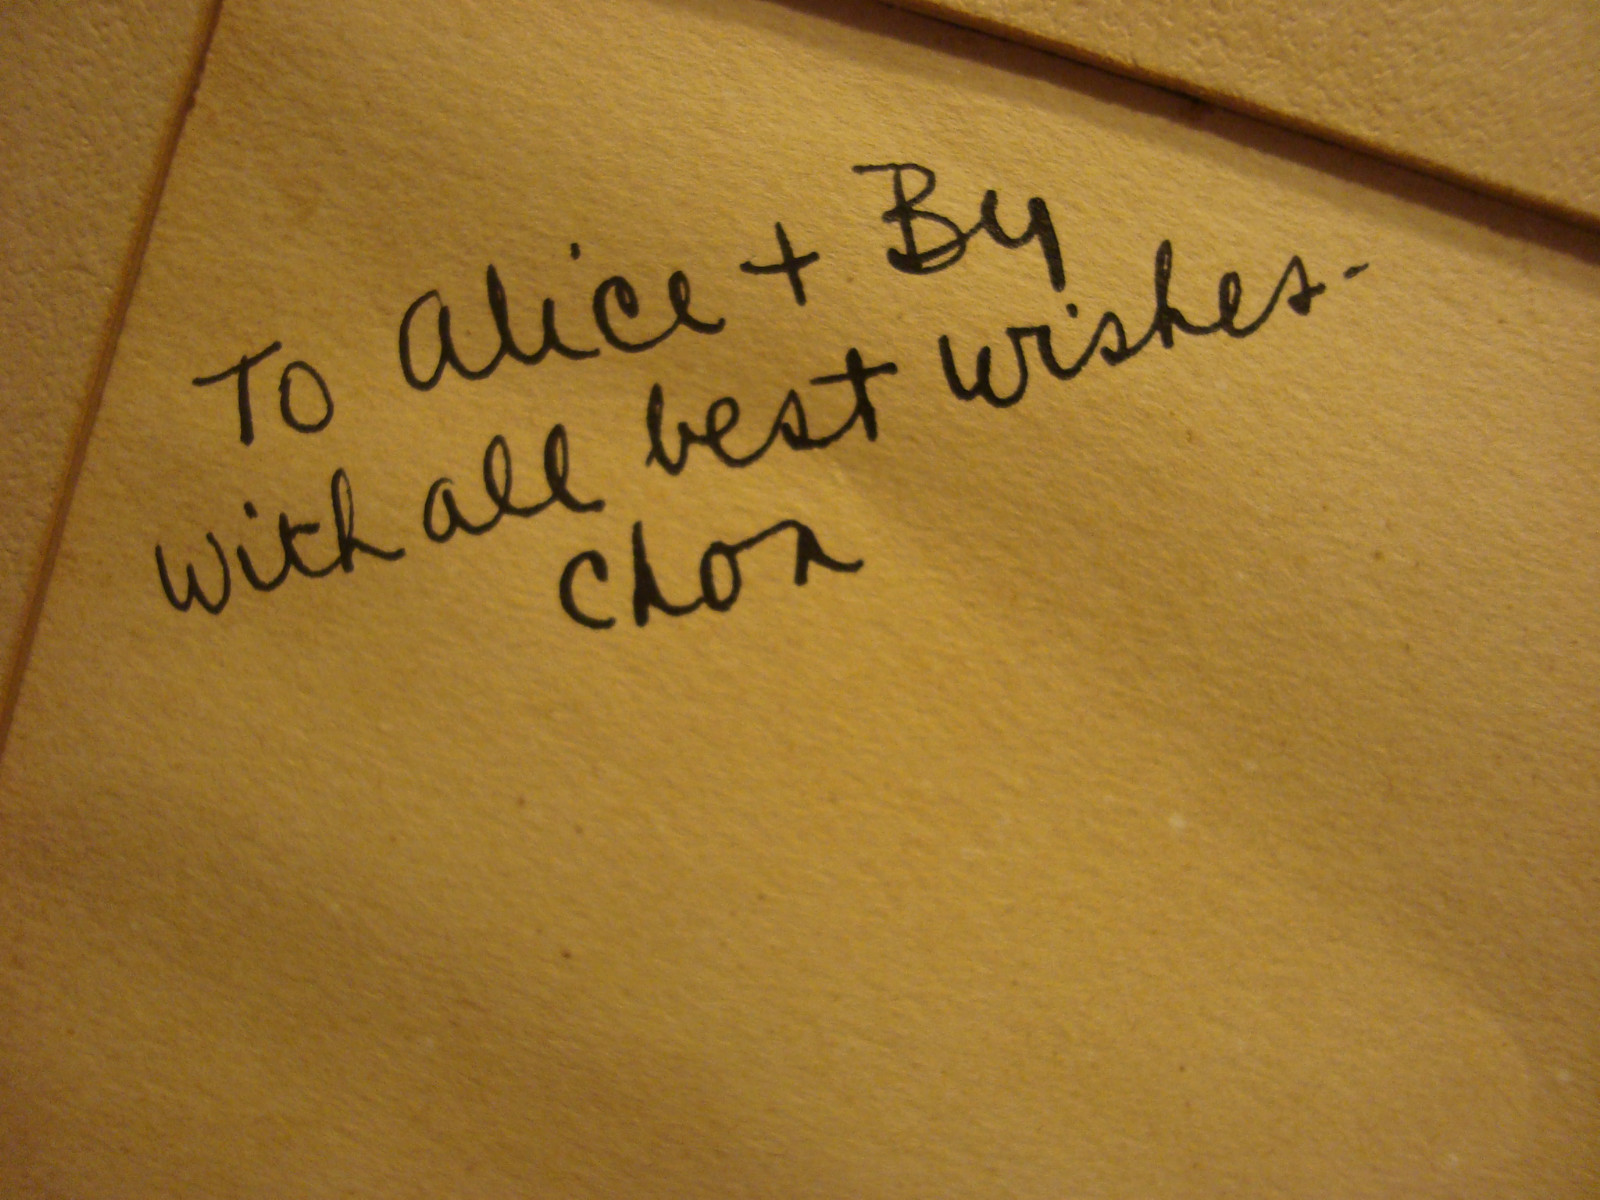 To Alice + By
with all best wishes-
Chon